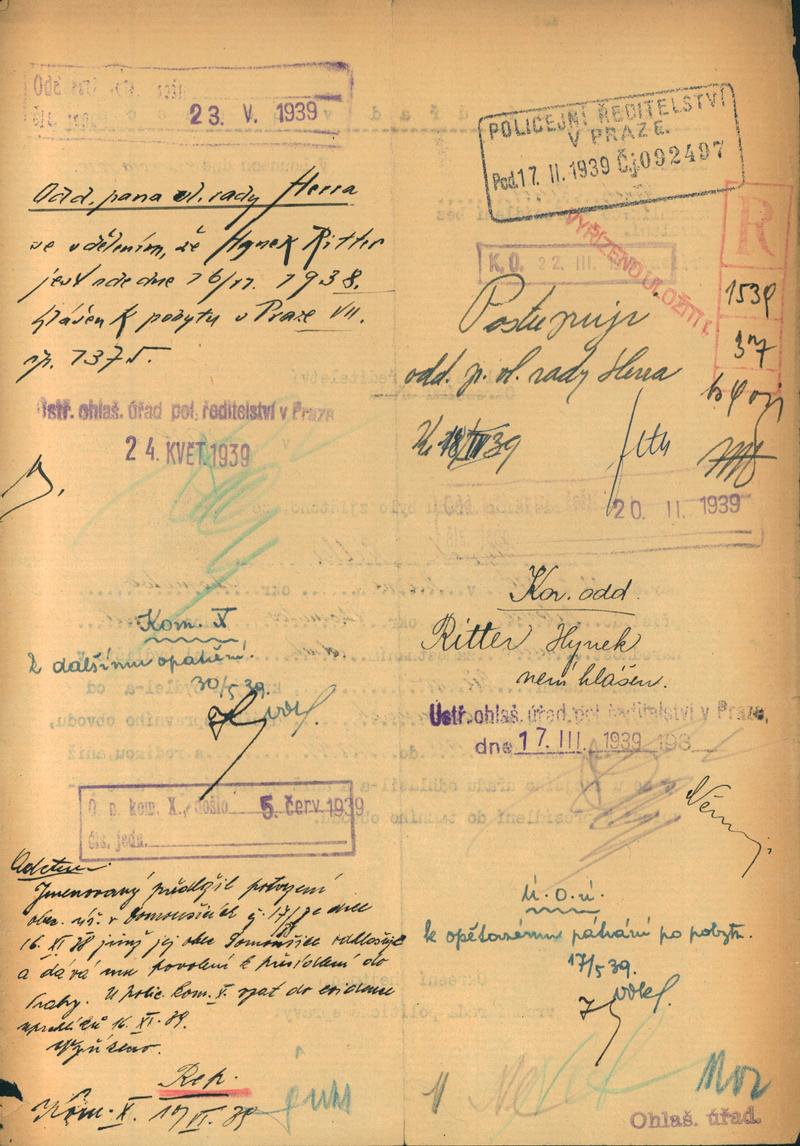 23. V. 1939
Odd. pana vl. rady Herra
se sdělením, že Hynek Ritter
jest zde dne 16/11. 1938.
hlášen k pobytu v Praze VII.
čp. 1375.
Ústř. ohlaš. úřad pol. ředitelství v Praze
24. KVĚT. 1939
Kom. X
k dalšímu opatření.
30/5 39.
O. p. kom. X., došlo 5. červ 1939
čís. jedn.
Jmenovaný předložil potvrzení
obec. úř. v Domoušicích č. 17/ ze dne
16. XI 38 jímž jej obec Domoušice odhlašuje
a dává mu povolení k přesídlení do
Prahy. U polic. kom. X. vzat do evidence
uprchlíků 16. XI. 39.
Vyřízeno.
Rep.
Kom. X. 17/VI. 39
POLICEJNÍ ŘEDITELSTVÍ
V PRAZE.
Pod. 17. II. 1939 Čj. 092497
R
K. O. 22. III.
VYŘÍZENO ULOŽITI
1539
Postupuji
odd. p. vl. rady Herra
20. II. 1939
Kov. odd.
Ritter Hynek
není hlášen.
Ústř. ohlaš. úřad pol. ředitelství v Praze,
dne 17. III. 1939 193
Ú. O. ú.
k opětovnému pátrání po pobytu.
17/5 39.
Ohlaš. úřad.